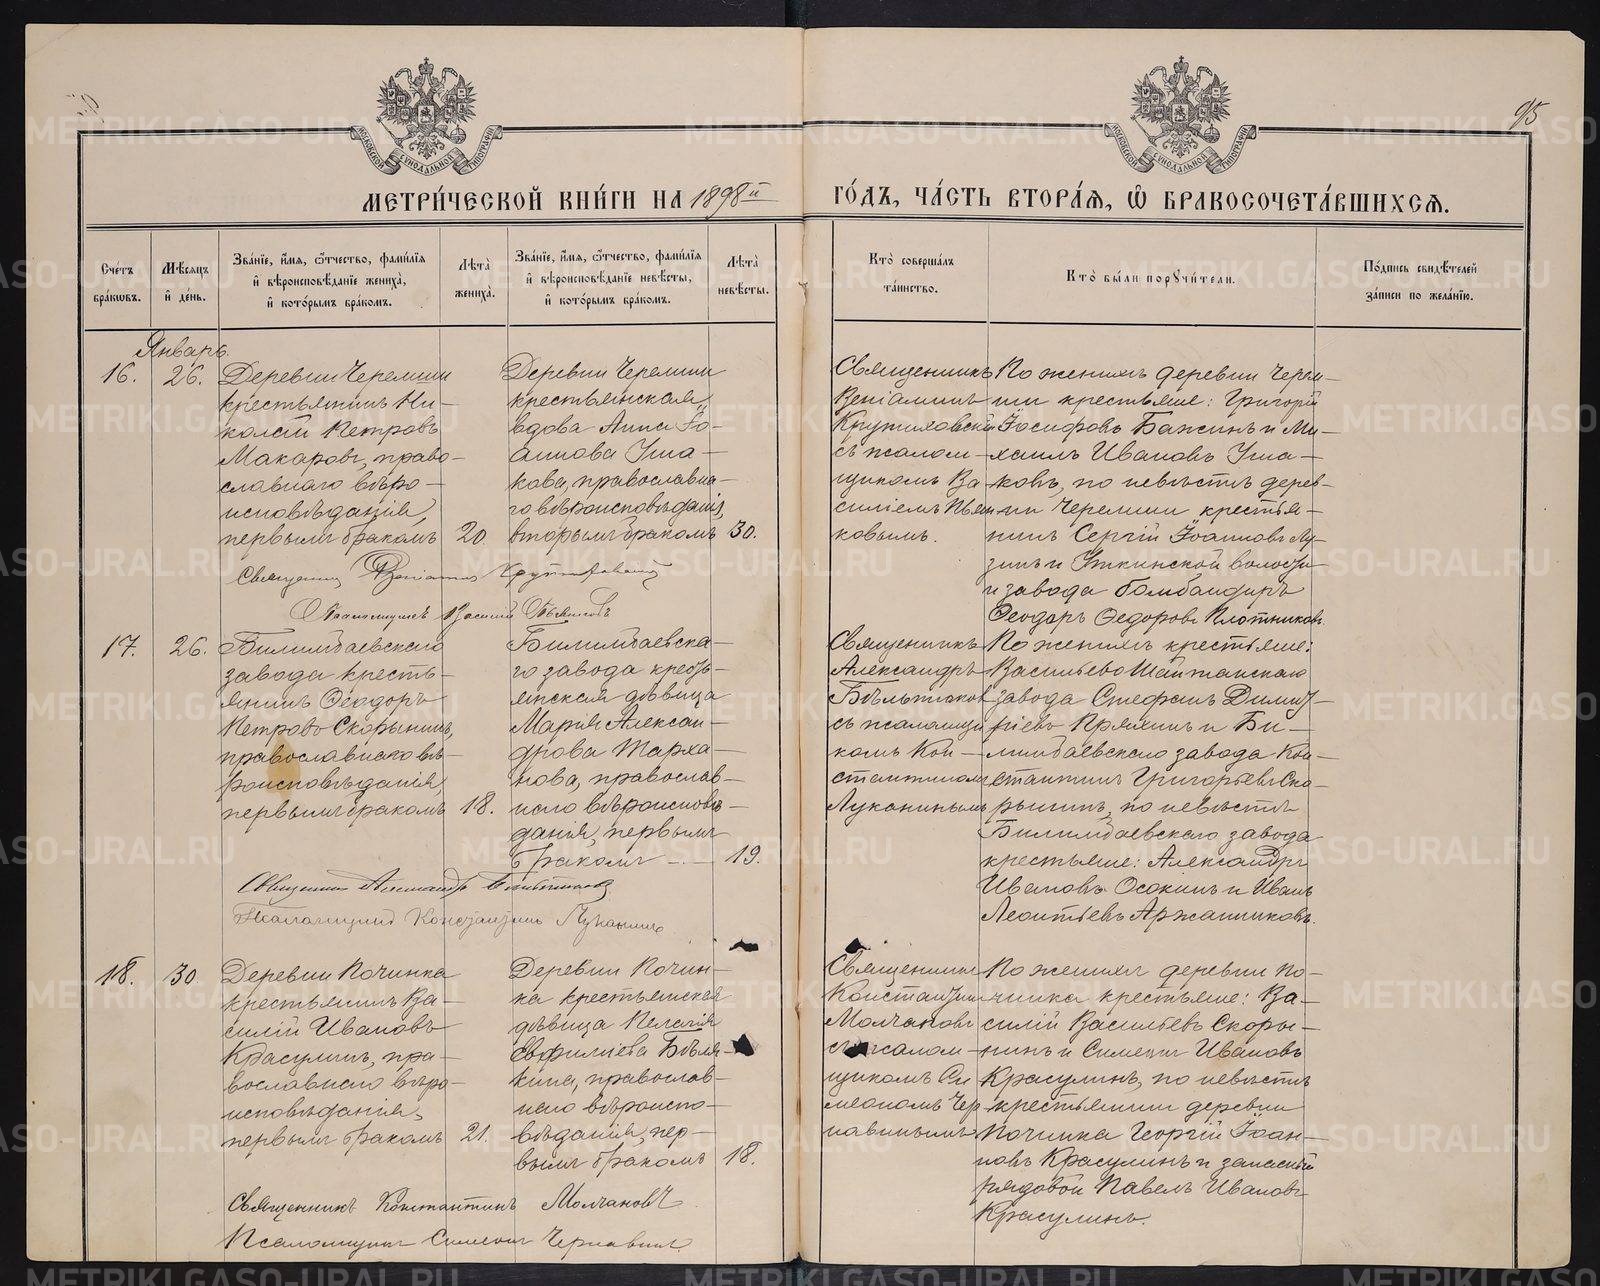 95
МЕТРИ́ЧЕСКОЙ КНИ́ГИ НА 1898й ГО́ДЪ, ЧА́СТЬ ВТОРА́Я, Ѡ҆ БРАКОСОЧЕТА́ВШИХСЯ.
Сче́тъ бра́ковъ.
Мѣ́сяцъ и҆ де́нь.
Зва́нїе, и҆́мя, ѻ҆́тчество, фами́лїя
и҆ вѣроисповѣ́данїе жениха̀,
и҆ кото́рымъ бра́комъ.
Лѣ́та жениха̀.
Зва́нїе, и҆́мя, ѻ҆́тчество, фами́лїя
и҆ вѣроисповѣ́данїе невѣ́сты,
и҆ кото́рымъ бра́комъ.
Лѣ́та невѣ́сты.
Кто̀ соверша́лъ
та́инство.
Кто̀ бы́ли порꙋчи́тели.
По́дпись свидѣ́телей
за́писи по жела́нїю.
Январь.
16.
26.
Деревни Черемши
крестьянинъ Ни-
колай Петровъ
Макаровъ, право-
славнаго вѣро-
исповѣданія,
первымъ бракомъ
20.
Деревни Черемши
крестьянская
вдова Анна Іо-
аннова Уша-
кова, православна-
го вѣроисповѣданія,
вторымъ бракомъ
30.
Священникъ
Веніаминъ
Крутиховскій
съ псалом-
щикомъ Ва
силіемъ Пьян
ковымъ.
По женихѣ деревни Черем-
ши крестьяне: Григорій
Іосифовъ Бажинъ и Ми-
хаилъ Ивановъ Уша-
ковъ, по невѣстѣ дерев-
ни Черемши крестья-
нинъ Сергій Іоанновъ Лу-
зинъ и Уткинской волости
и завода бомбандиръ
Ѳеодоръ Ѳедоровъ Плотниковъ.
Священникъ Веніаминъ Крутиховскій
Псаломщикъ Василій Пьянковъ
17.
26.
Билимбаевскаго
завода кресть-
янинъ Ѳеодоръ
Петровъ Скорынинъ,
православнаго вѣ-
роисповѣданія,
первымъ бракомъ
18.
Билимбаевска-
го завода кресть-
янская дѣвица
Марія Алексан-
дрова Тарха-
нова, православ-
наго вѣроисповѣ-
данія, первымъ
бракомъ
19.
Священникъ
Александръ
Бѣльтиковъ
съ псаломщи
комъ Кон-
стантиномъ
Луканинымъ
По женихѣ крестьяне:
Васильево Шайтанскаго
завода Стефанъ Димит-
ріевъ Пряхинъ и Би-
лимбаевскаго завода Кон-
стантинъ Григорьевъ Ско-
рынинъ, по невѣстѣ
Билимбаевскаго завода
крестьяне: Александръ
Ивановъ Осокинъ и Иванъ
Леонтьевъ Аржанниковъ.
Священникъ Александръ Бѣльтиковъ
Псаломщикъ Константинъ Луканинъ
18.
30.
Деревни Починка
крестьянинъ Ва-
силій Ивановъ
Красулинъ, пра-
вославнаго вѣро-
исповѣданія,
первымъ бракомъ
21.
Деревни Почин-
ка крестьянская
дѣвица Пелагія
Евфиміева Бѣля-
кина, православ-
наго вѣроиспо-
вѣданія, пер-
вымъ бракомъ
18.
Священникъ
Константинъ
Молчановъ
съ псалом-
щикомъ Си
меономъ Чер
навинымъ
По женихѣ деревни По-
чинка крестьяне: Ва-
силій Васильевъ Скоры-
нинъ и Симеонъ Ивановъ
Красулинъ, по невѣстѣ
крестьянинъ деревни
Починка Георгій Іоан-
новъ Красулинъ и запасный
рядовой Павелъ Ивановъ
Красулинъ.
Священникъ Константинъ Молчановъ
Псаломщикъ Симеонъ Чернавинъ